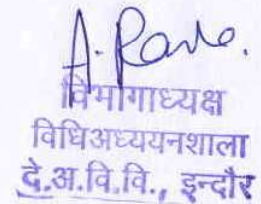 विभागाध्यक्ष
विधिअध्ययनशाला
दे.अ.वि.वि., इन्दौर